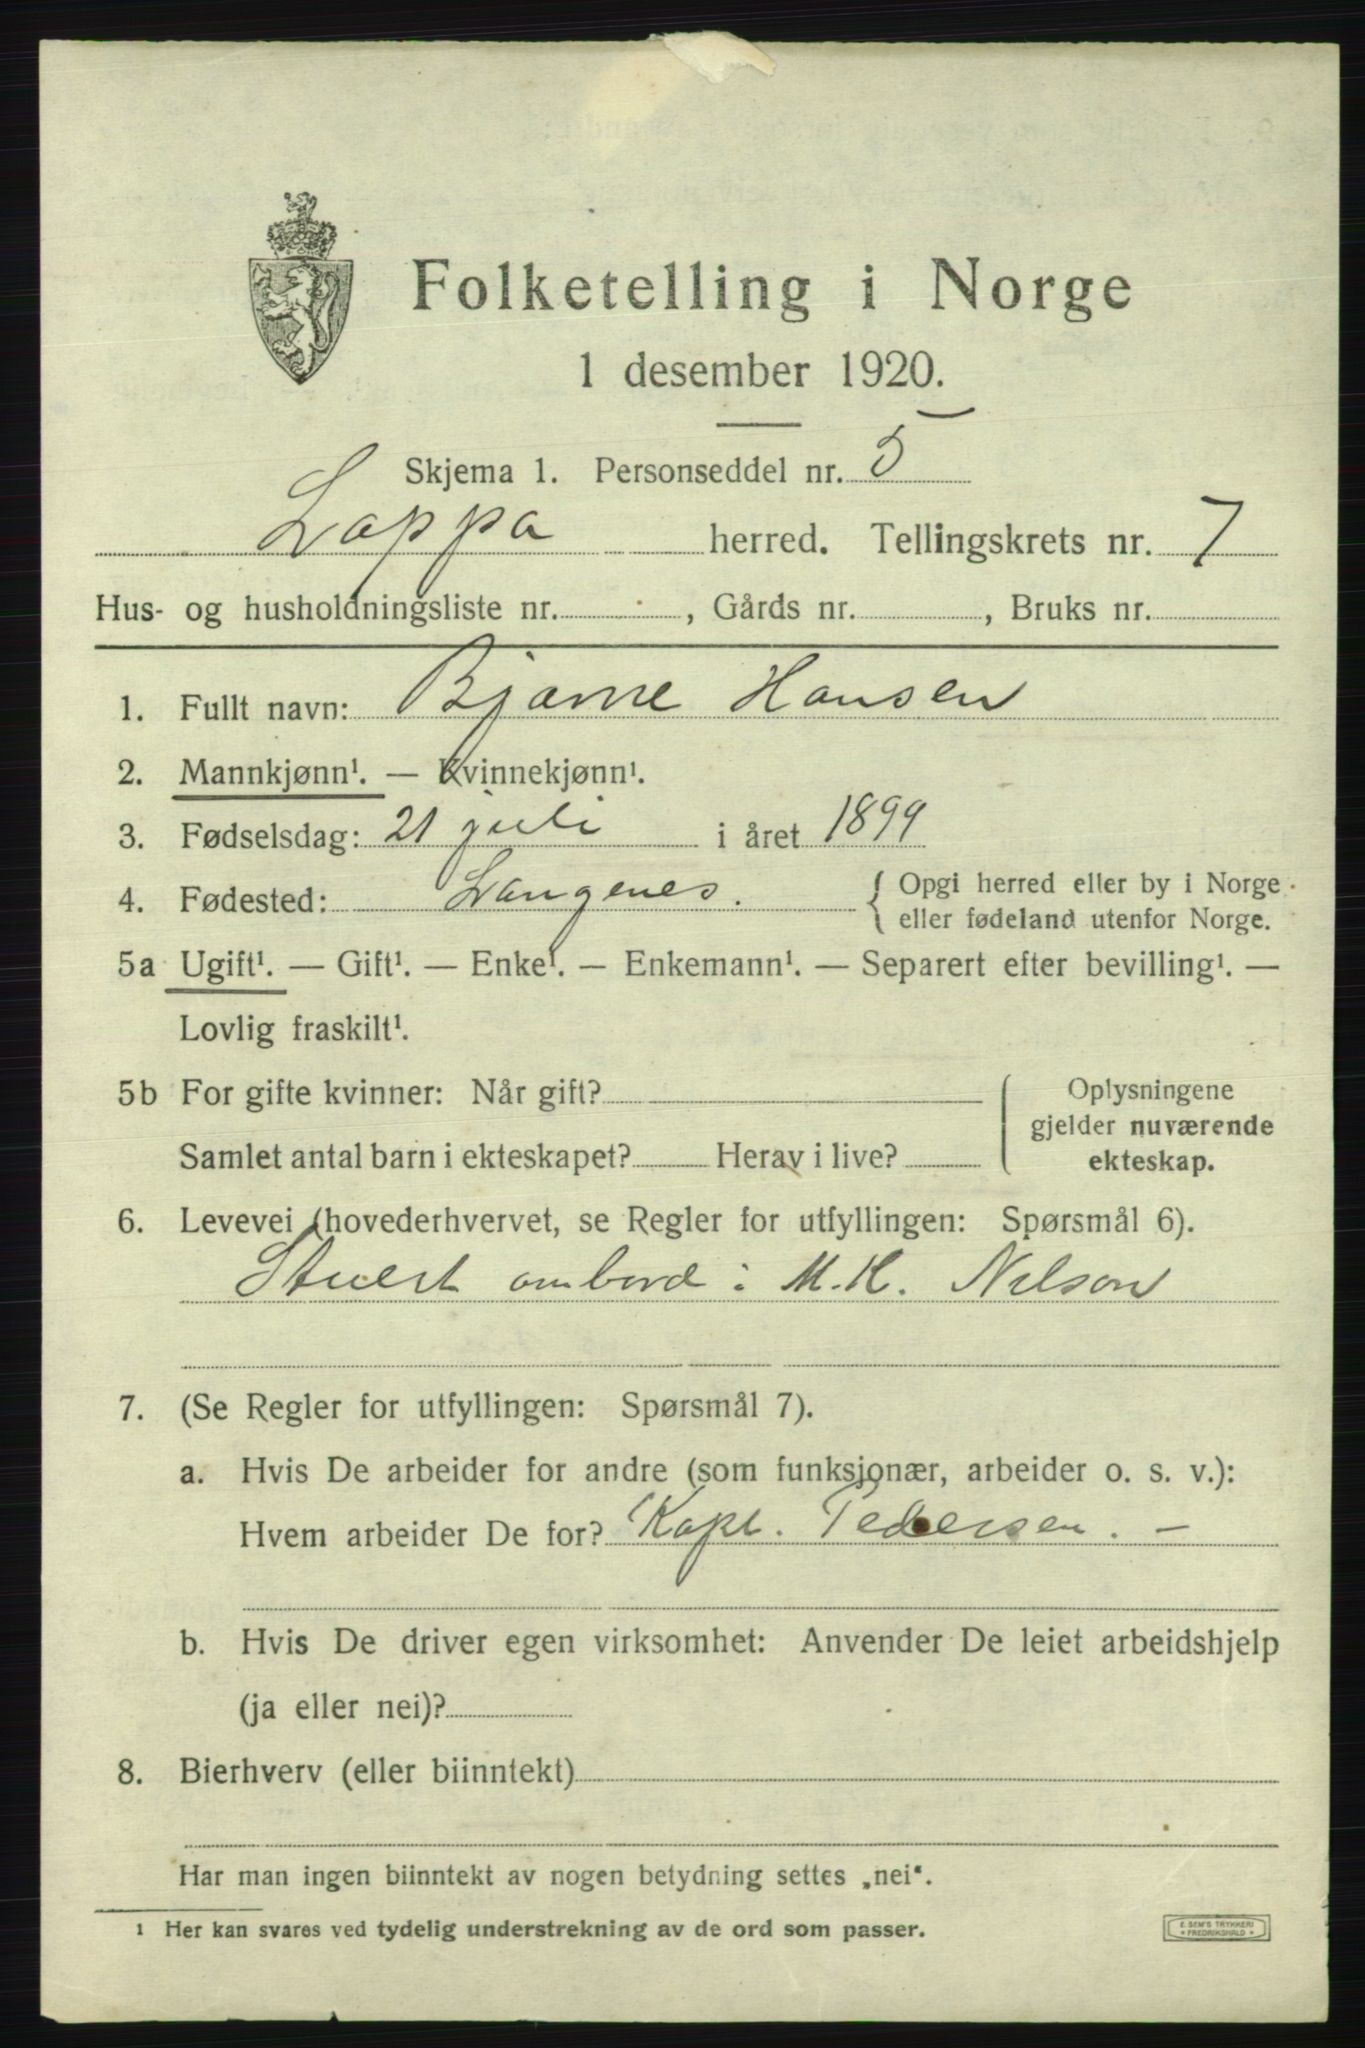 Folketelling i Norge
1 desember 1920.
Skjema 1. Personseddel nr. 5
Loppa herred. Tellingskrets nr. 7
Hus- og husholdningsliste nr. , Gårds nr. , Bruks nr.
1. Fullt navn: Bjarne Hansen
2. Mannkjønn¹. — Kvinnekjønn¹.
3. Fødselsdag: 21 juli i året 1899
4. Fødested: Langenes. { Opgi herred eller by i Norge
eller fødeland utenfor Norge.
5a Ugift¹. — Gift¹. — Enke¹. — Enkemann¹. — Separert efter bevilling¹. —
Lovlig fraskilt¹.
5b For gifte kvinner: Når gift? Oplysningene
gjelder nuværende
Samlet antal barn i ekteskapet? Herav i live? ekteskap.
6. Levevei (hovederhvervet, se Regler for utfyllingen: Spørsmål 6).
Stuert ombord i M.K. Nelson
7. (Se Regler for utfyllingen: Spørsmål 7).
a. Hvis De arbeider for andre (som funksjonær, arbeider o. s. v.):
Hvem arbeider De for? Kapt. Pedersen. —
b. Hvis De driver egen virksomhet: Anvender De leiet arbeidshjelp
(ja eller nei)?
8. Bierhverv (eller biinntekt)
Har man ingen biinntekt av nogen betydning settes „nei“.
¹ Her kan svares ved tydelig understrekning av de ord som passer.
E. SEM'S TRYKKERI
• FREDRIKSHALD •